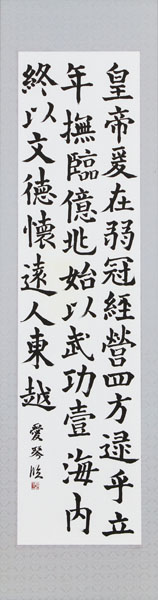 皇帝爰在弱冠経營四方逯乎立
年撫臨億兆始以武功壹海内
終以文德懷遠人東越
愛琴臨